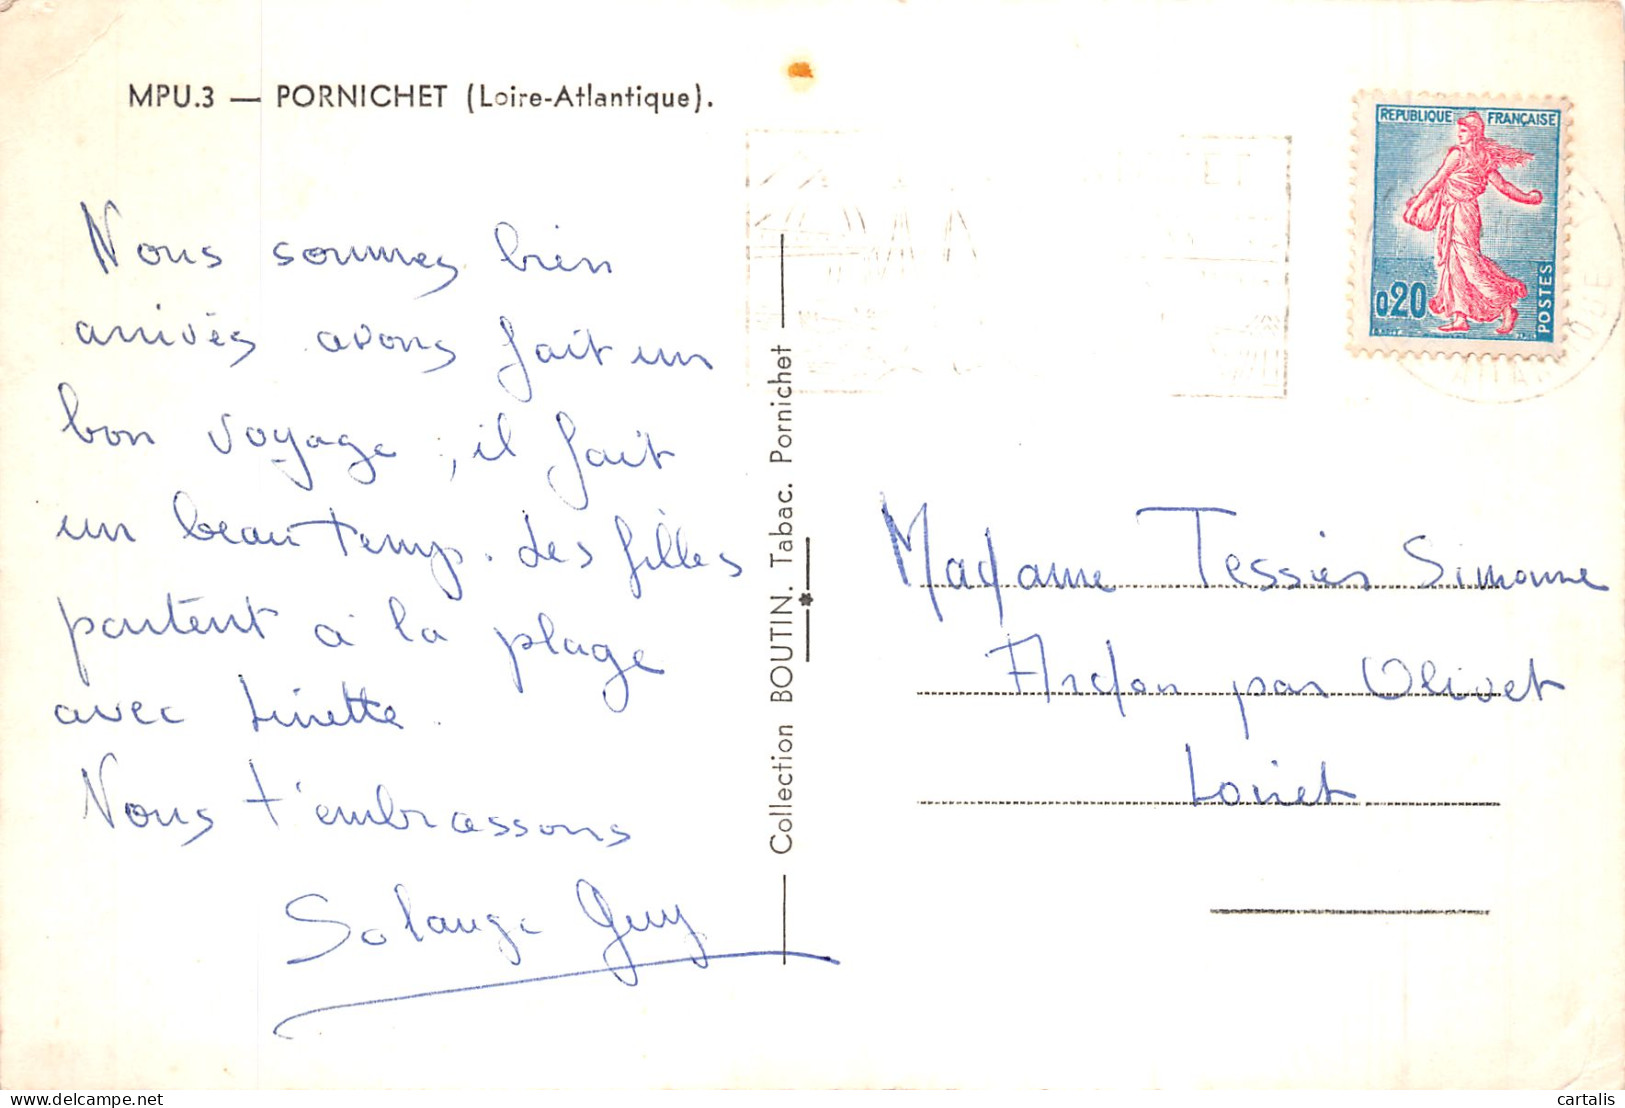 MPU.3 — PORNICHET (Loire-Atlantique).
Nous sommes bien
arrivés avons fait un
bon voyage ; il fait
un beau temps. Les filles
partent à la plage
avec Linette.
Nous t'embrassons
Solange Guy
Collection BOUTIN. Tabac. Pornichet
REPUBLIQUE FRANÇAISE
0,20
POSTES
Madame Tessier Simonne
Ardon par Olivet
Loiret
cartalis
delcampe.net